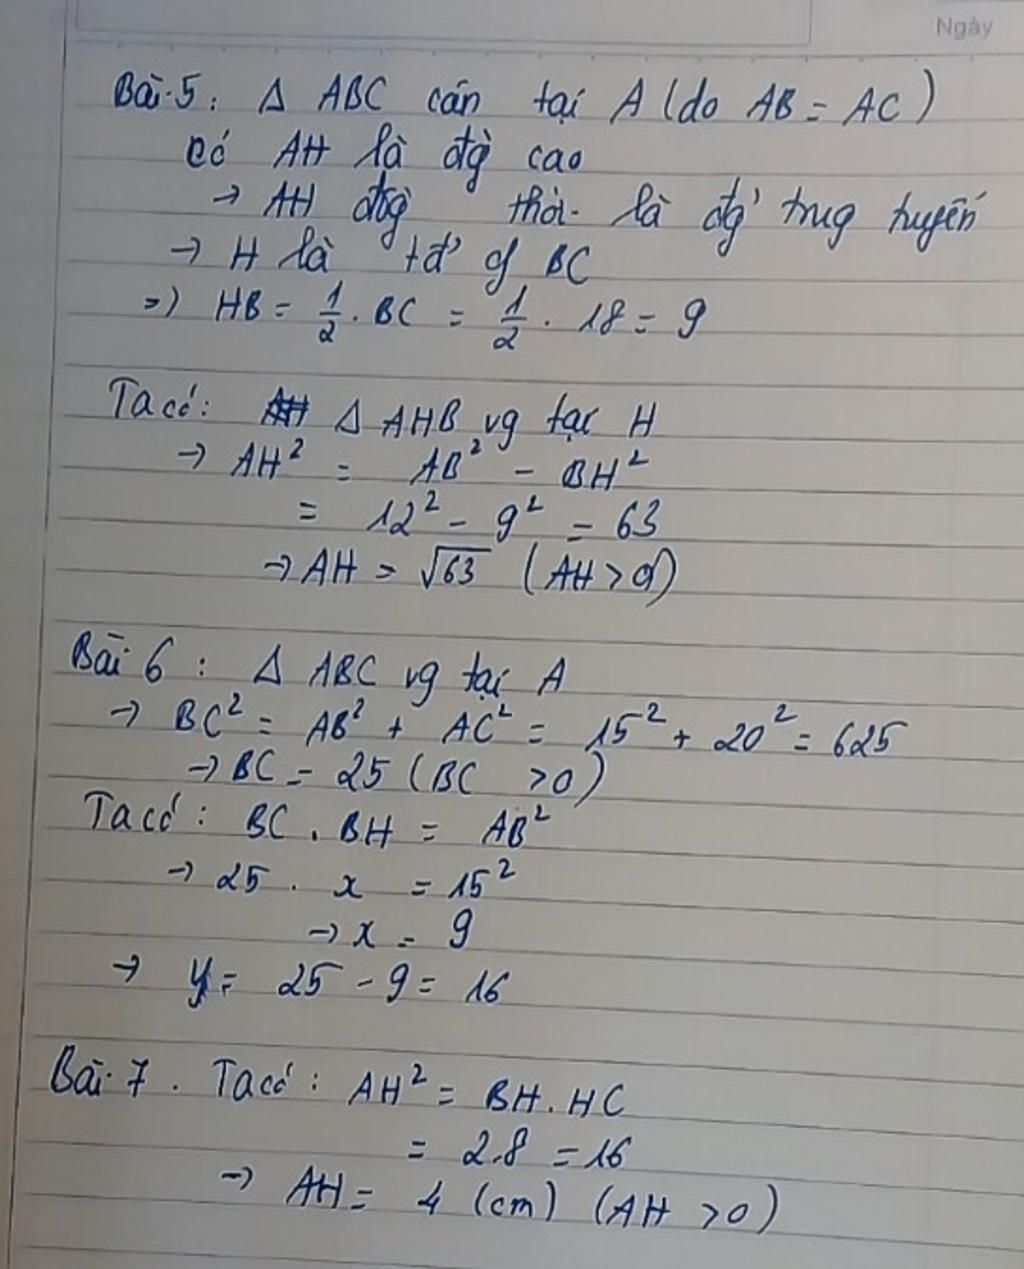 Ngày
Bài 5: Δ ABC cân tại A (do AB = AC)
có AH là đg̀ cao
→ AH đồg thời là đg̀ trug tuyến
→ H là tđ' of BC
=> HB = 1/2 . BC = 1/2 . 18 = 9
Ta có: Δ AHB vg tại H
→ AH² = AB² - BH²
= 12² - 9² = 63
→ AH = √63 (AH > 0)
Bài 6: Δ ABC vg tại A
→ BC² = AB² + AC² = 15² + 20² = 625
→ BC = 25 (BC > 0)
Ta có: BC . BH = AB²
→ 25 . x = 15²
→ x = 9
→ y = 25 - 9 = 16
Bài 7. Ta có: AH² = BH . HC
= 2.8 = 16
→ AH = 4 (cm) (AH > 0)